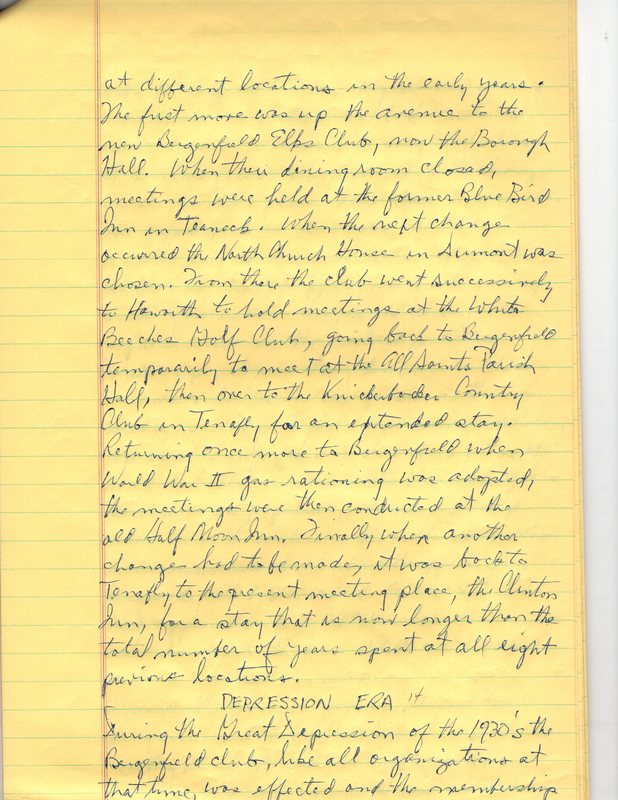 at different locations in the early years.
The first move was up the avenue to the
new Bergenfield Elks Club, now the Borough
Hall. When their dining room closed,
meetings were held at the former Blue Bird
Inn in Teaneck. When the next change
occurred the North Church House in Dumont was
chosen. From there the club went successively
to Haworth to hold meetings at the White
Beeches Golf Club, going back to Bergenfield
temporarily to meet at the All Saints Parish
Hall, then over to the Knickerbocker Country
Club in Tenafly for an extended stay.
Returning once more to Bergenfield when
World War II gas rationing was adopted,
the meetings were then conducted at the
old Half Moon Inn. Finally when another
change had to be made, it was back to
Tenafly to the present meeting place, the Clinton
Inn, for a stay that is now longer than the
total number of years spent at all eight
previous locations.
DEPRESSION ERA 14
During the Great Depression of the 1930's the
Bergenfield club, like all organizations at
that time, was effected and the membership